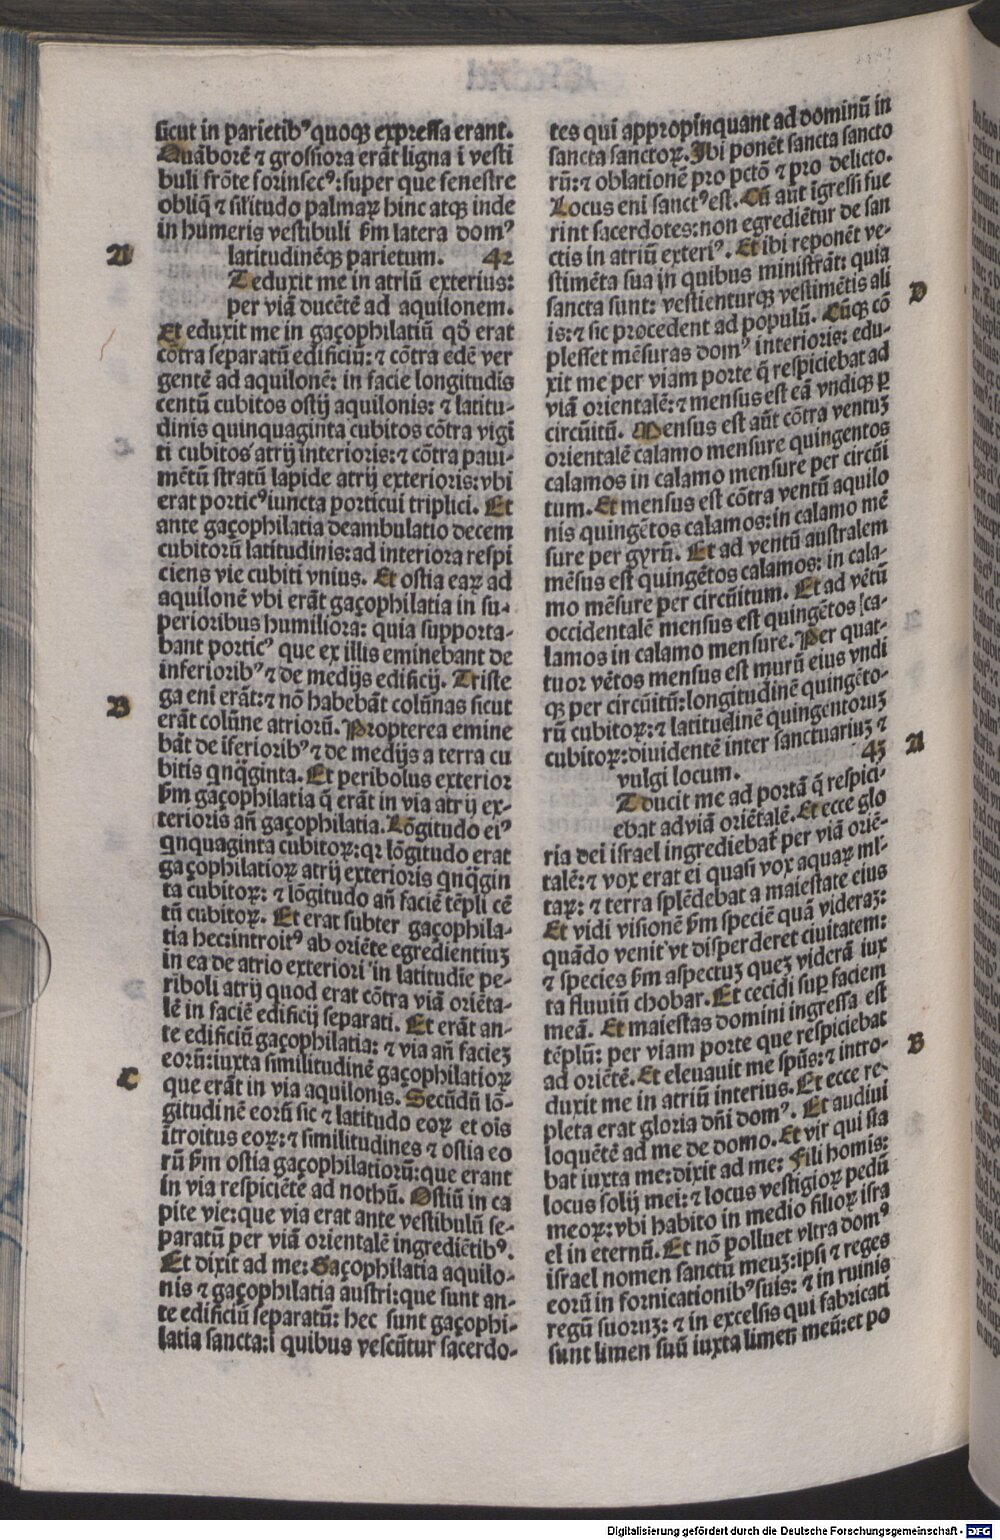 sicut in parietibꝰ quoqꝫ expressa erant.
Quāborē ⁊ grossiora erāt ligna ī vesti
buli frōte forinsecꝰ: super que fenestre
obliq̄ ⁊ sīlitudo palmaꝝ hinc atqꝫ inde
in humeris vestibuli ẜm latera domꝰ
A
latitudinēqꝫ parietum. 42
T eduxit me in atriū exterius:
per viā ducētē ad aquilonem.
Et eduxit me in gaçophilatiū qd̄ erat
cōtra separatū edificiū: ⁊ cōtra edē ver
gentē ad aquilonē: in facie longitudis
centū cubitos ostij aquilonis: ⁊ latitu-
dinis quinquaginta cubitos cōtra vigī
ti cubitos atrij interioris: ⁊ cōtra paui-
mētū stratū lapide atrij exterioris: vbi
erat porticꝰ iuncta porticui triplici. Et
ante gaçophilatia deambulatio decem
cubitorū latitudinis: ad interiora respi
ciens vie cubiti vnius. Et ostia eaꝝ ad
aquilonē vbi erāt gaçophilatia in su-
perioribus humiliora: quia supporta-
bant porticꝰ que ex illis eminebant de
inferioribꝰ ⁊ de medijs edificij. Triste
B
ga eni erāt: ⁊ nō habebāt colūnas sicut
erāt colūne atriorū. Propterea emine
bāt de īferioribꝰ ⁊ de medijs a terra cu
bitis qnq̄ginta. Et peribolus exterior
ẜm gaçophilatia q̄ erāt in via atrij ex-
terioris an̄ gaçophilatia. Lōgitudo eiꝰ
qnquaginta cubitoꝝ: qꝛ lōgitudo erat
gaçophilatioꝝ atrij exterioris qnq̄gin
ta cubitoꝝ: ⁊ lōgitudo an̄ faciē tēpli cē
tū cubitoꝝ. Et erat subter gaçophila-
tia hec: introitꝰ ab oriēte egredientiuꝫ
in ea de atrio exteriori in latitudīe pe-
riboli atrij quod erat cōtra viā oriēta-
lē in faciē edificij separati. Et erāt an-
te edificiū gaçophilatia: ⁊ via an̄ facieꝫ
eorū: iuxta similitudinē gaçophilatioꝝ
C
que erāt in via aquilonis. Secūdū lō-
gitudinē eorū sic ⁊ latitudo eoꝝ et oīs
ītroitus eoꝝ: ⁊ similitudines ⁊ ostia eo
rū ẜm ostia gaçophilatiorū: que erant
in via respiciētē ad nothū. Ostiū in ca
pite vie: que via erat ante vestibulū se-
paratū per viā orientalē ingrediētibꝰ.
Et dixit ad me: Gaçophilatia aquilo-
nis ⁊ gaçophilatia austri: que sunt an-
te edificiū separatū: hec sunt gaçophi-
latia sancta: ī quibus vescūtur sacerdo-
tes qui appropinquant ad dominū in
sancta sanctoꝝ. Ibi ponēt sancta sancto
rū: ⁊ oblationē pro pctō ⁊ pro delicto.
Locus eni sanctꝰ est. Cū aūt īgressi fue
rint sacerdotes: non egrediētur de san
ctis in atriū exteriꝰ. Et ibi reponēt ve-
stimēta sua in quibus ministrāt: quia
sancta sunt: vestienturqꝫ vestimētis ali
D
is: ⁊ sic procedent ad populū. Cūqꝫ cō
plesset mēsuras domꝰ interioris: edu-
xit me per viam porte q̄ respiciebat ad
viā orientalē: ⁊ mensus est eā vndiqꝫ ꝑ
circūitū. Mensus est aūt cōtra ventuꝫ
orientalē calamo mensure quingentos
calamos in calamo mensure per circūi
tum. Et mensus est cōtra ventū aquilo
nis quingētos calamos: in calamo mē
sure per gyrū. Et ad ventū australem
mēsus est quingētos calamos: in cala-
mo mēsure per circūitum. Et ad vētū
occidentalē mensus est quingētos ca-
lamos in calamo mensure. Per quat-
tuor vētos mensus est murū eius vndi
qꝫ per circūitū: longitudinē quingēto-
rū cubitoꝝ: ⁊ latitudinē quingentoruꝫ
cubitoꝝ: diuidentē inter sanctuariuꝫ ⁊
vulgi locum. 43
A
T ducit me ad portā q̄ respici-
ebat ad viā oriētalē. Et ecce glo
ria dei israel ingrediebat̄ per viā oriē-
talē: ⁊ vox erat ei quasi vox aquaꝝ ml-
taꝝ: ⁊ terra splēdebat a maiestate eius
Et vidi visionē ẜm speciē quā videraꝫ:
quādo venit vt disperderet ciuitatem:
⁊ species ẜm aspectuꝫ queꝫ viderā iux
ta fluuiū chobar. Et cecidi suꝑ faciem
meā. Et maiestas domini ingressa est
tēplū: per viam porte que respiciebat
B
ad oriētē. Et eleuauit me spūs: ⁊ intro-
duxit me in atriū interius. Et ecce re-
pleta erat gloria dn̄i domꝰ. Et audiui
loquētē ad me de domo. Et vir qui sta
bat iuxta me: dixit ad me: Fili homis:
locus solij mei: ⁊ locus vestigioꝝ pedū
meoꝝ: vbi habito in medio filioꝝ isra
el in eternū. Et nō polluet vltra domꝰ
israel nomen sanctū meuꝫ: ipsi ⁊ reges
eorū in fornicationibꝰ suis: ⁊ in ruinis
regū suoruꝫ: ⁊ in excelsis qui fabricati
sunt limen suū iuxta limen meū: et po
Digitalisierung gefördert durch die Deutsche Forschungsgemeinschaft - DFG